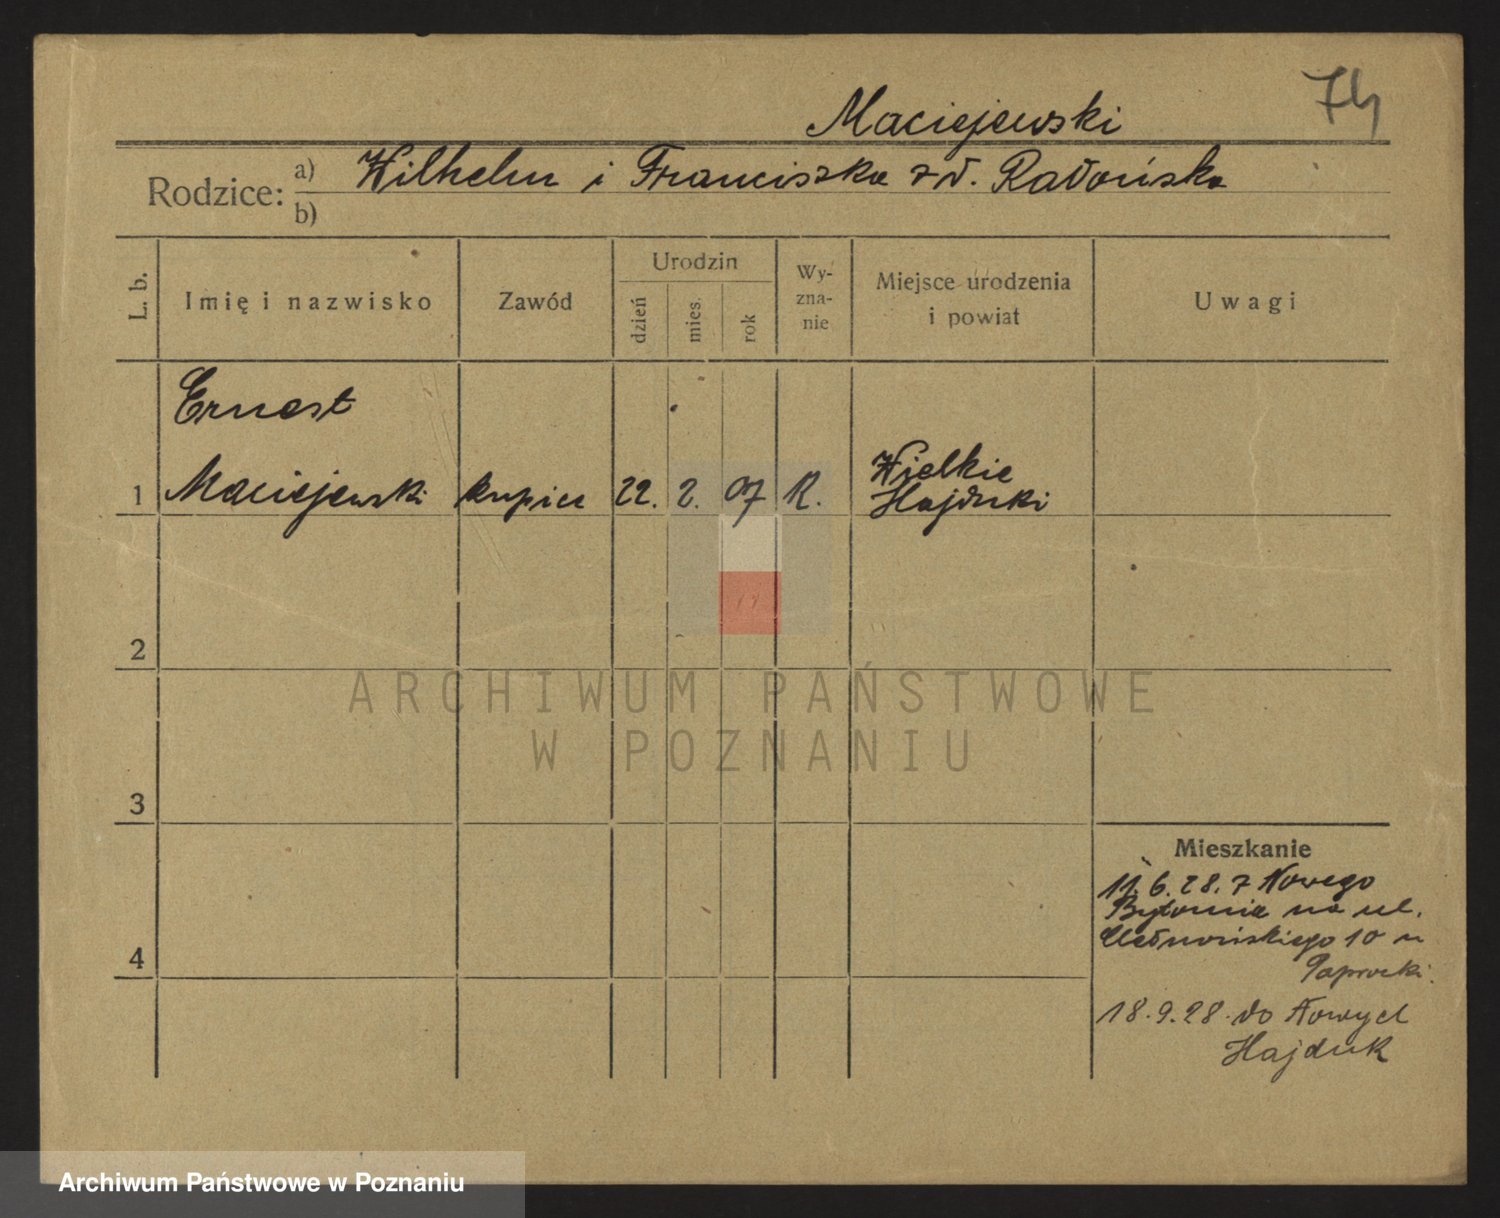 Maciejewski
Rodzice: a) Wilhelm i Franciszka z d. Radońska
b)
L. b.
Imię i nazwisko
Zawód
Urodzin
dzień
mies.
rok
Wy-
zna-
nie
Miejsce urodzenia
i powiat
Uwagi
Ernest
1 Maciejewski kupiec 22. 2. 07 R. Wielkie
Hajduki
2
3
4
Mieszkanie
11. 6. 28. z Nowego
Bytomia na ul.
10 u
Paprocki.
18. 9. 28. do Nowych
Hajduk
ARCHIWUM PAŃSTWOWE
W POZNANIU
Archiwum Państwowe w Poznaniu